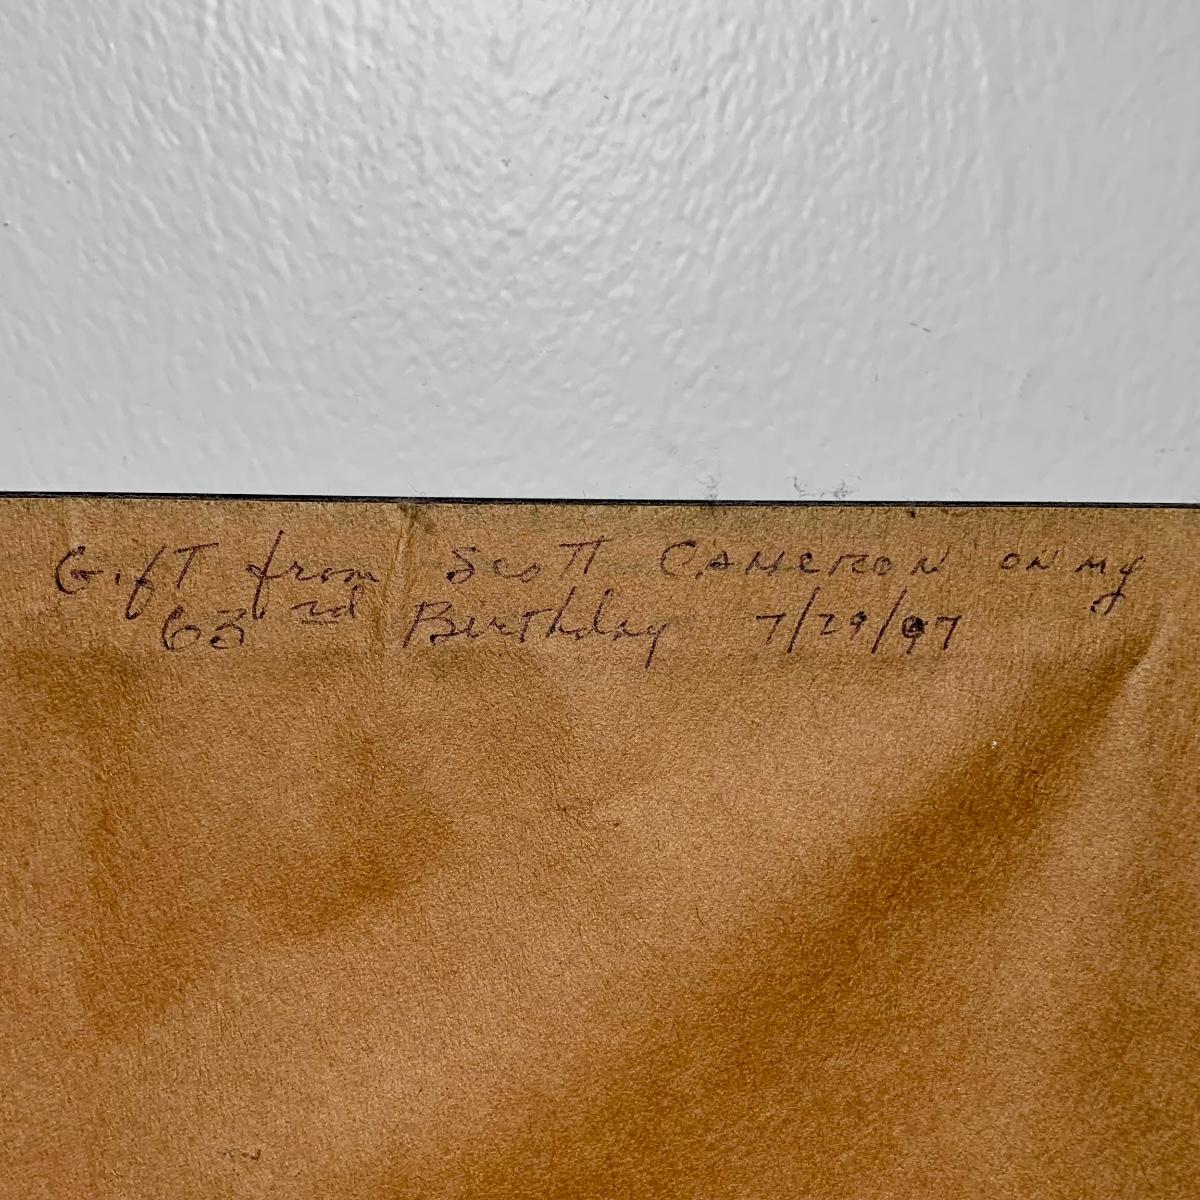 Gift from Scott CAMERON ON My
63rd Birthday 7/29/97